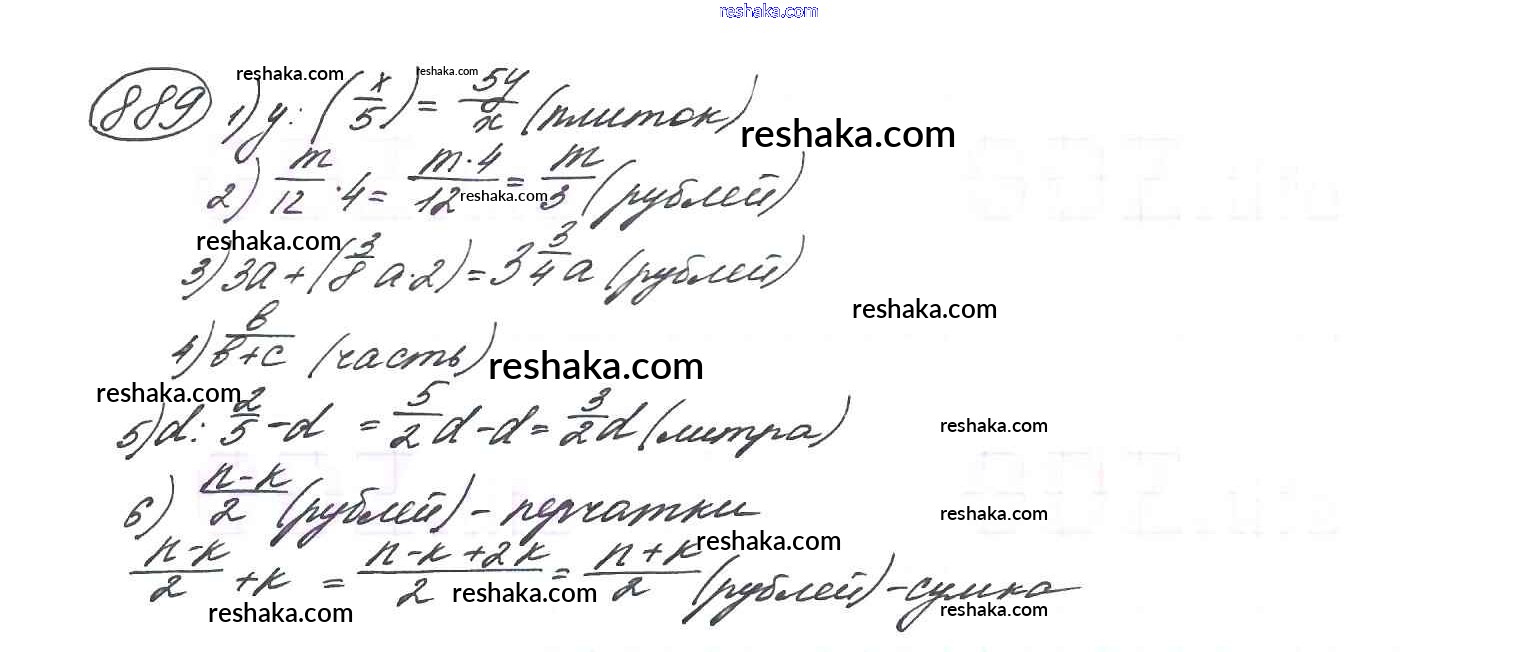 reshaka.com
889 1) y : (x/5) = 5y/x (плиток)
reshaka.com
reshaka.com
reshaka.com
2) m/12 · 4 = m·4/12 = m/3 (рублей)
reshaka.com
reshaka.com
3) 3a + (3/8 a·2) = 3 3/4 a (рублей)
reshaka.com
4) в/в+c (часть)
reshaka.com
reshaka.com
5) d : 2/5 - d = 5/2 d - d = 3/2 d (литра)
reshaka.com
6) n-k/2 (рублей) - перчатки
reshaka.com
reshaka.com
n-k/2 + k = n-k+2k/2 = n+k/2 (рублей) - сумка
reshaka.com
reshaka.com
reshaka.com